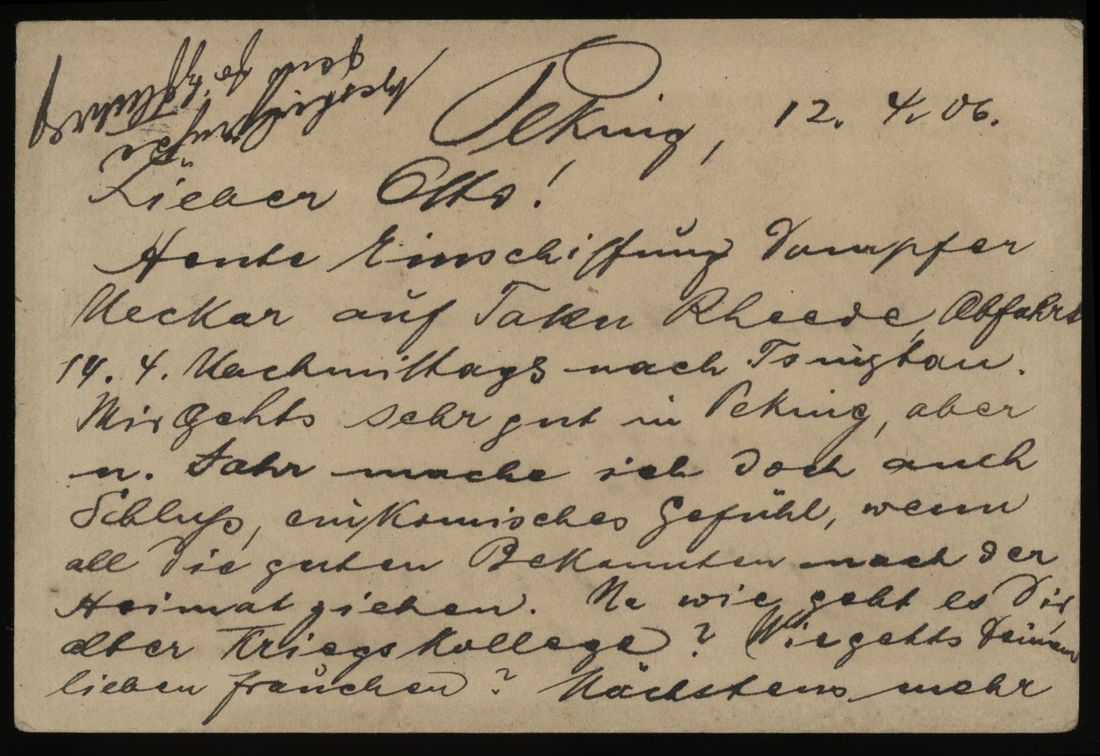 Peking, 12. 4. 06.
Lieber Otto!
Heute Einschiffung Dampfer
Neckar auf Taku Rheede, Abfahrt
14. 4. Nachmittags nach Tsingtau.
Mir gehts sehr gut in Peking, aber
n. Jahr mache ich doch auch
Schluß, ein komisches Gefühl, wenn
all die guten Bekannten nach der
Heimat ziehen. Na wie geht es Dir,
alter Kriegskollege? Wie gehts Deinem
lieben Frauchen? Nächstens mehr